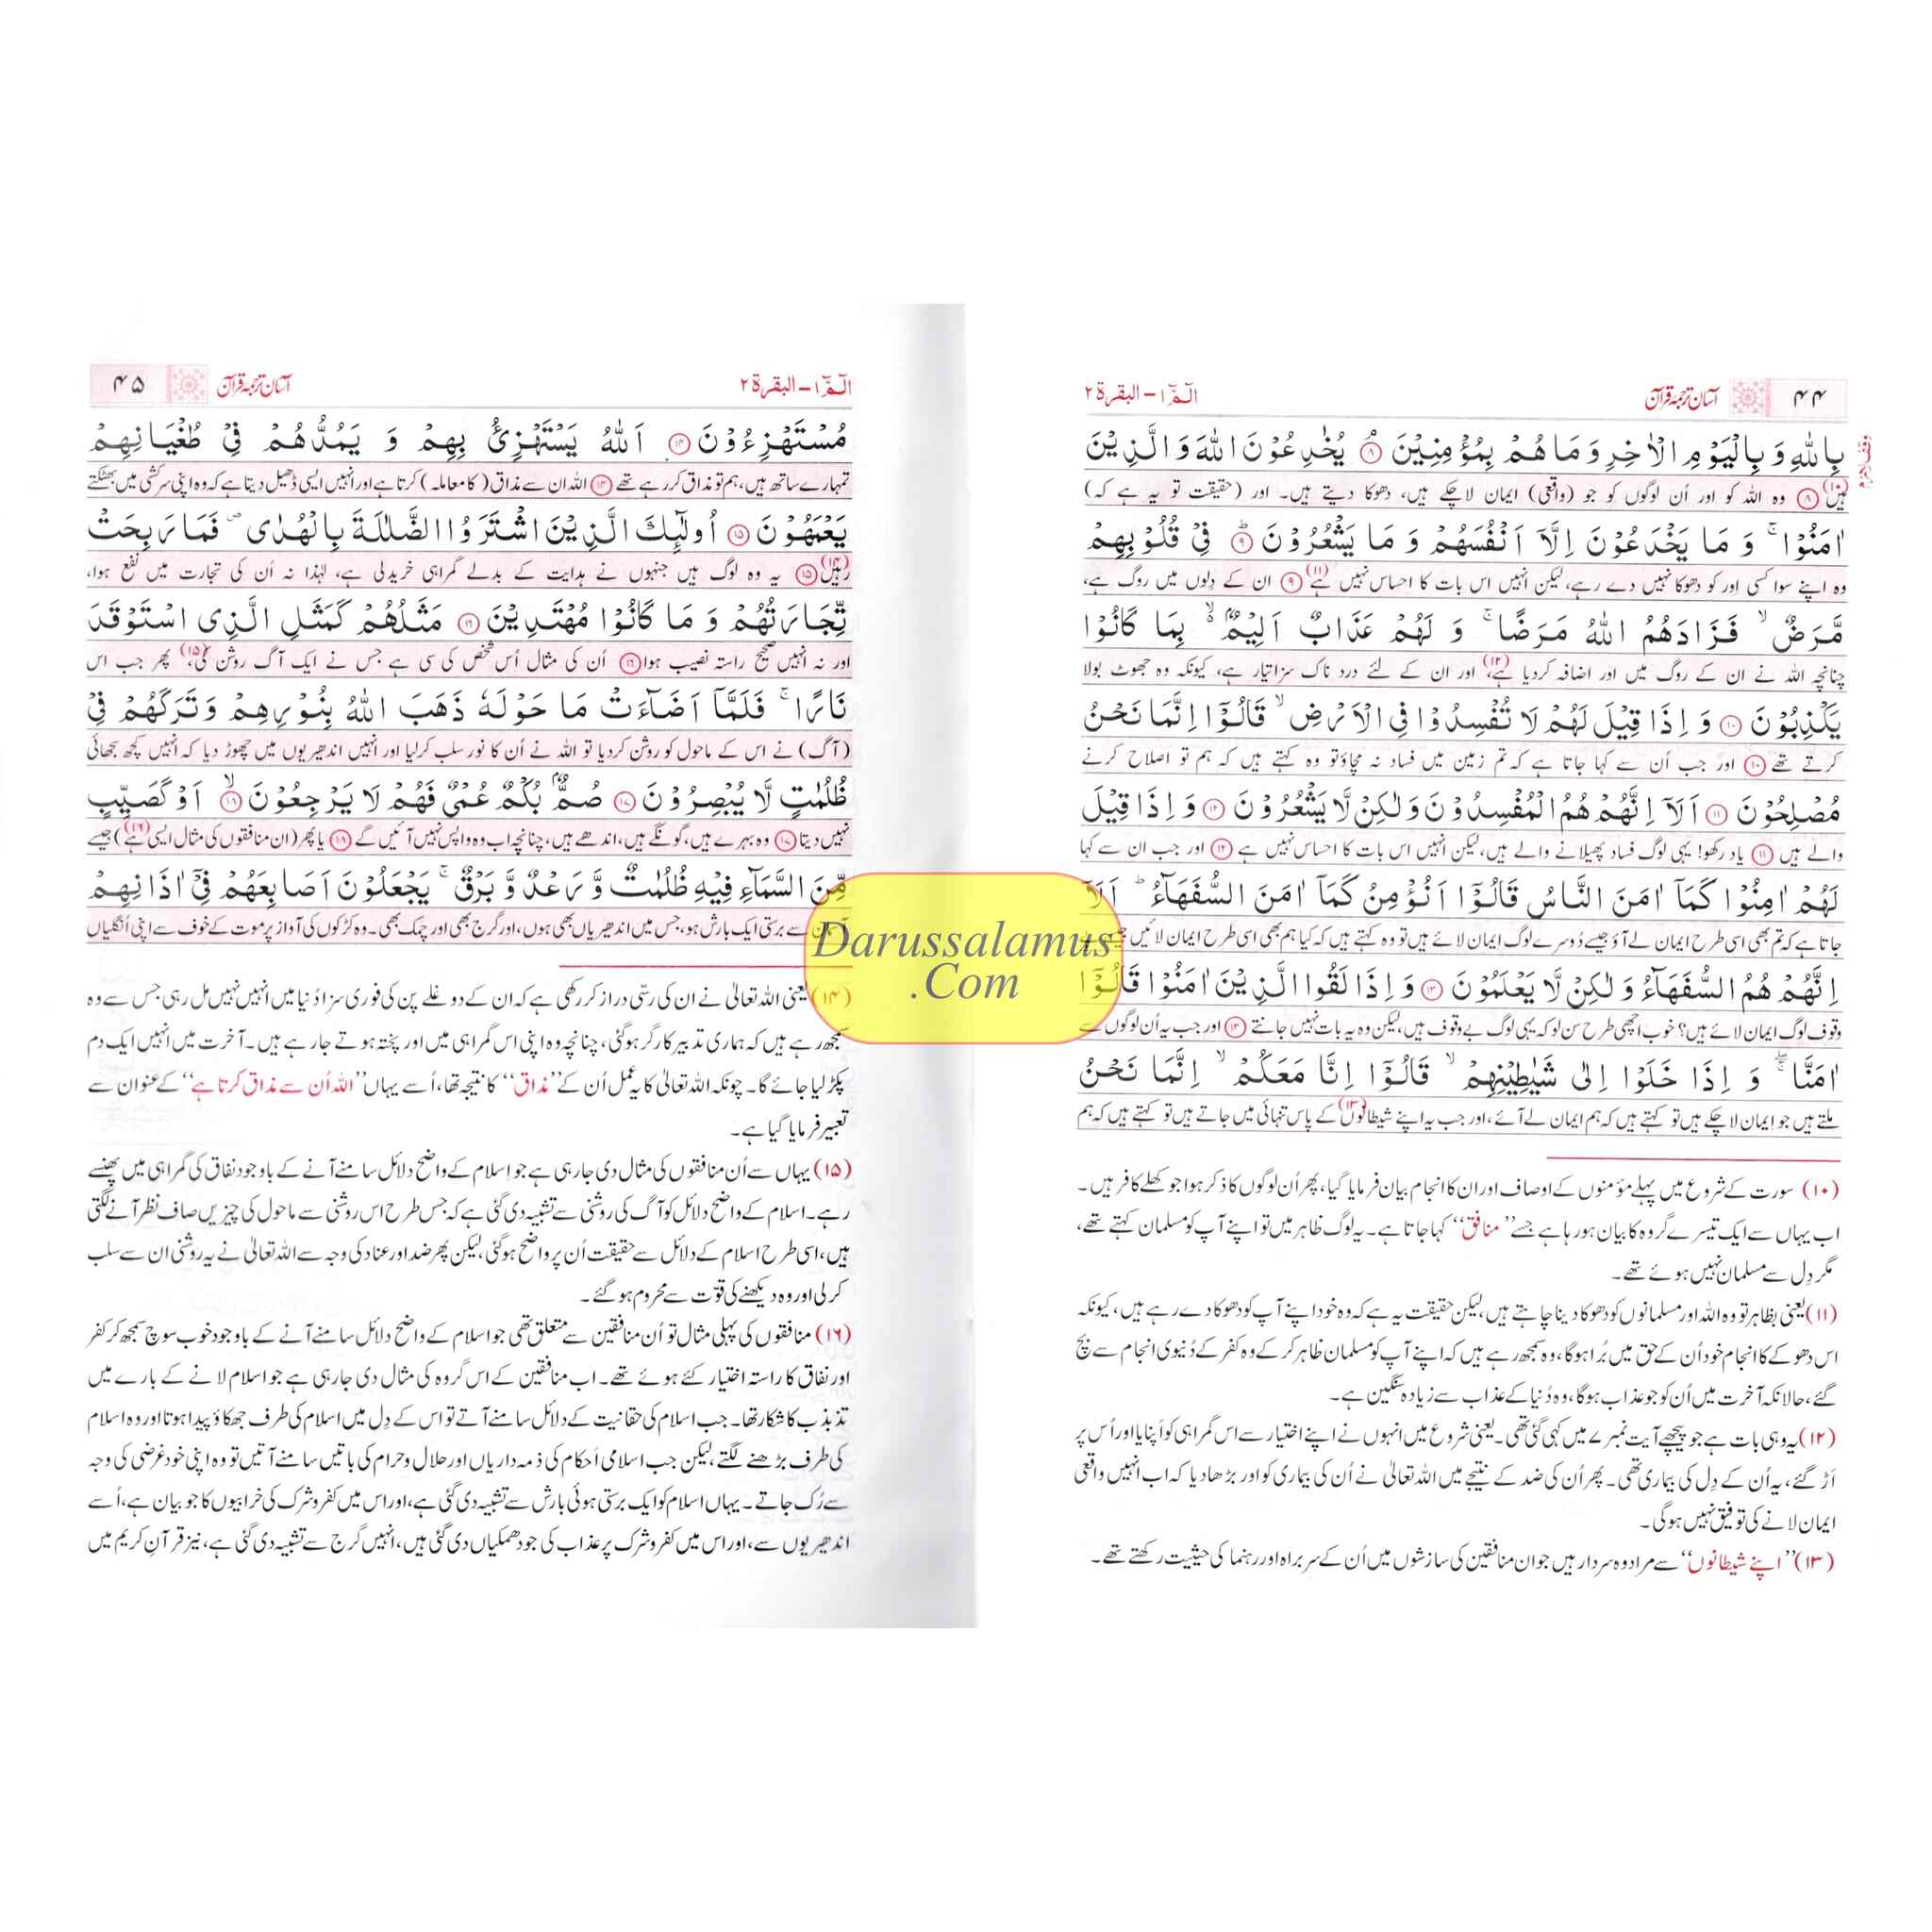 ۴۴
آسان ترجمۂ قرآن
الٓمّٓ ۱ – البقرة ۲
وقف لازم
بِاللّٰهِ وَ بِالْيَوْمِ الْاٰخِرِ وَ مَا هُمْ بِمُؤْمِنِيْنَ ۘ﴿۸﴾ يُخٰدِعُوْنَ اللّٰهَ وَ الَّذِيْنَ
ہیں(۱۰) ﴿۸﴾ وہ اللہ کو اور اُن لوگوں کو جو (واقعی) ایمان لاچکے ہیں، دھوکا دیتے ہیں۔ اور (حقیقت تو یہ ہے کہ)
اٰمَنُوْا ۚ وَ مَا يَخْدَعُوْنَ اِلَّاۤ اَنْفُسَهُمْ وَ مَا يَشْعُرُوْنَ ؕ﴿۹﴾ فِيْ قُلُوْبِهِمْ
وہ اپنے سوا کسی اور کو دھوکا نہیں دے رہے، لیکن انہیں اس بات کا احساس نہیں ہے(۱۱) ﴿۹﴾ ان کے دِلوں میں روگ ہے،
مَّرَضٌ ۙ فَزَادَهُمُ اللّٰهُ مَرَضًا ۚ وَ لَهُمْ عَذَابٌ اَلِيْمٌۢ ۙ بِمَا كَانُوْا
چنانچہ اللہ نے ان کے روگ میں اور اضافہ کردیا ہے(۱۲)، اور ان کے لئے درد ناک سزا تیار ہے، کیونکہ وہ جھوٹ بولا
يَكْذِبُوْنَ ﴿۱۰﴾ وَ اِذَا قِيْلَ لَهُمْ لَا تُفْسِدُوْا فِى الْاَرْضِ ۙ قَالُوْۤا اِنَّمَا نَحْنُ
کرتے تھے ﴿۱۰﴾ اور جب اُن سے کہا جاتا ہے کہ تم زمین میں فساد نہ مچاؤ تو وہ کہتے ہیں کہ ہم تو اصلاح کرنے
مُصْلِحُوْنَ ﴿۱۱﴾ اَلَاۤ اِنَّهُمْ هُمُ الْمُفْسِدُوْنَ وَ لٰكِنْ لَّا يَشْعُرُوْنَ ﴿۱۲﴾ وَ اِذَا قِيْلَ
والے ہیں ﴿۱۱﴾ یاد رکھو! یہی لوگ فساد پھیلانے والے ہیں، لیکن انہیں اس بات کا احساس نہیں ہے ﴿۱۲﴾ اور جب ان سے کہا
لَهُمْ اٰمِنُوْا كَمَاۤ اٰمَنَ النَّاسُ قَالُوْۤا اَنُؤْمِنُ كَمَاۤ اٰمَنَ السُّفَهَآءُ ؕ اَلَاۤ
جاتا ہے کہ تم بھی اسی طرح ایمان لے آؤ جیسے دُوسرے لوگ ایمان لائے ہیں تو وہ کہتے ہیں کہ کیا ہم بھی اسی طرح ایمان لائیں
اِنَّهُمْ هُمُ السُّفَهَآءُ وَ لٰكِنْ لَّا يَعْلَمُوْنَ ﴿۱۳﴾ وَ اِذَا لَقُوا الَّذِيْنَ اٰمَنُوْا قَالُوْۤا
وقوف لوگ ایمان لائے ہیں؟ خوب اچھی طرح سن لو کہ یہی لوگ بے وقوف ہیں، لیکن وہ یہ بات نہیں جانتے ﴿۱۳﴾ اور جب یہ اُن لوگوں سے
اٰمَنَّا ۖۚ وَ اِذَا خَلَوْا اِلٰى شَيٰطِيْنِهِمْ ۙ قَالُوْۤا اِنَّا مَعَكُمْ ۙ اِنَّمَا نَحْنُ
ملتے ہیں جو ایمان لاچکے ہیں تو کہتے ہیں کہ ہم ایمان لے آئے، اور جب یہ اپنے شیطانوں(۱۳) کے پاس تنہائی میں جاتے ہیں تو کہتے ہیں کہ ہم
(۱۰) سورت کے شروع میں پہلے مؤمنوں کے اوصاف اور ان کا انجام بیان فرمایا گیا، پھر اُن لوگوں کا ذکر ہوا جو کھلے کافر ہیں۔
اب یہاں سے ایک تیسرے گروہ کا بیان ہورہا ہے جسے ”منافق“ کہا جاتا ہے۔ یہ لوگ ظاہر میں تو اپنے آپ کو مسلمان کہتے تھے،
مگر دِل سے مسلمان نہیں ہوئے تھے۔
(۱۱) یعنی بظاہر تو وہ اللہ اور مسلمانوں کو دھوکا دینا چاہتے ہیں، لیکن حقیقت یہ ہے کہ وہ خود اپنے آپ کو دھوکا دے رہے ہیں، کیونکہ
اس دھوکے کا انجام خود اُن کے حق میں بُرا ہوگا، وہ سمجھ رہے ہیں کہ اپنے آپ کو مسلمان ظاہر کرکے وہ کفر کے دُنیوی انجام سے بچ
گئے، حالانکہ آخرت میں اُن کو جو عذاب ہوگا، وہ دُنیا کے عذاب سے زیادہ سنگین ہے۔
(۱۲) یہ وہی بات ہے جو پیچھے آیت نمبر ۷ میں کہی گئی تھی۔ یعنی شروع میں انہوں نے اپنے اختیار سے اس گمراہی کو اَپنایا اور اُس پر
اَڑ گئے، یہ اُن کے دِل کی بیماری تھی۔ پھر اُن کی ضد کے نتیجے میں اللہ تعالیٰ نے اُن کی بیماری کو اور بڑھا دیا کہ اب انہیں واقعی
ایمان لانے کی توفیق نہیں ہوگی۔
(۱۳) ”اپنے شیطانوں“ سے مراد وہ سردار ہیں جو ان منافقین کی سازشوں میں اُن کے سربراہ اور رہنما کی حیثیت رکھتے تھے۔
الٓمّٓ ۱ – البقرة ۲
آسان ترجمۂ قرآن
۴۵
مُسْتَهْزِءُوْنَ ﴿۱۴﴾ اَللّٰهُ يَسْتَهْزِئُ بِهِمْ وَ يَمُدُّهُمْ فِيْ طُغْيَانِهِمْ
تمہارے ساتھ ہیں، ہم تو مذاق کررہے تھے ﴿۱۴﴾ اللہ ان سے مذاق (کا معاملہ) کرتا ہے اور انہیں ایسی ڈھیل دیتا ہے کہ وہ اپنی سرکشی میں بھٹکتے
يَعْمَهُوْنَ ﴿۱۵﴾ اُولٰٓئِكَ الَّذِيْنَ اشْتَرَوُا الضَّلٰلَةَ بِالْهُدٰى ۪ فَمَا رَبِحَتْ
رہیں(۱۴) ﴿۱۵﴾ یہ وہ لوگ ہیں جنہوں نے ہدایت کے بدلے گمراہی خرید لی ہے، لہٰذا نہ اُن کی تجارت میں نفع ہوا،
تِّجَارَتُهُمْ وَ مَا كَانُوْا مُهْتَدِيْنَ ﴿۱۶﴾ مَثَلُهُمْ كَمَثَلِ الَّذِى اسْتَوْقَدَ
اور نہ انہیں صحیح راستہ نصیب ہوا ﴿۱۶﴾ اُن کی مثال اُس شخص کی سی ہے جس نے ایک آگ روشن کی(۱۵)، پھر جب اس
نَارًا ۚ فَلَمَّاۤ اَضَآءَتْ مَا حَوْلَهٗ ذَهَبَ اللّٰهُ بِنُوْرِهِمْ وَ تَرَكَهُمْ فِيْ
(آگ) نے اس کے ماحول کو روشن کردیا تو اللہ نے اُن کا نور سلب کرلیا اور انہیں اندھیریوں میں چھوڑ دیا کہ انہیں کچھ سجھائی
ظُلُمٰتٍ لَّا يُبْصِرُوْنَ ﴿۱۷﴾ صُمٌّۢ بُكْمٌ عُمْيٌ فَهُمْ لَا يَرْجِعُوْنَ ۙ﴿۱۸﴾ اَوْ كَصَيِّبٍ
نہیں دیتا ﴿۱۷﴾ وہ بہرے ہیں، گونگے ہیں، اندھے ہیں، چنانچہ اب وہ واپس نہیں آئیں گے ﴿۱۸﴾ یا پھر (ان منافقوں کی مثال ایسی ہے(۱۶)) جیسے
مِّنَ السَّمَآءِ فِيْهِ ظُلُمٰتٌ وَّ رَعْدٌ وَّ بَرْقٌ ۚ يَجْعَلُوْنَ اَصَابِعَهُمْ فِيْۤ اٰذَانِهِمْ
سے برستی ایک بارش ہو، جس میں اندھیریاں بھی ہوں، اور گرج بھی اور چمک بھی۔ وہ کڑکوں کی آواز پر موت کے خوف سے اپنی اُنگلیاں
(۱۴) یعنی اللہ تعالیٰ نے ان کی رسّی دراز کر رکھی ہے کہ ان کے دوغلے پن کی فوری سزا دُنیا میں انہیں نہیں مل رہی جس سے وہ
سمجھ رہے ہیں کہ ہماری تدبیر کارگر ہوگئی، چنانچہ وہ اپنی اس گمراہی میں اور پختہ ہوتے جارہے ہیں۔ آخرت میں انہیں ایک دم
پکڑ لیا جائے گا۔ چونکہ اللہ تعالیٰ کا یہ عمل اُن کے ”مذاق“ کا نتیجہ تھا، اُسے یہاں ”اللہ اُن سے مذاق کرتا ہے“ کے عنوان سے
تعبیر فرمایا گیا ہے۔
(۱۵) یہاں سے اُن منافقوں کی مثال دی جارہی ہے جو اسلام کے واضح دلائل سامنے آنے کے باوجود نفاق کی گمراہی میں پھنسے
رہے۔ اسلام کے واضح دلائل کو آگ کی روشنی سے تشبیہ دی گئی ہے کہ جس طرح اس روشنی سے ماحول کی چیزیں صاف نظر آنے لگتی
ہیں، اسی طرح اسلام کے دلائل سے حقیقت اُن پر واضح ہوگئی، لیکن پھر ضد اور عناد کی وجہ سے اللہ تعالیٰ نے یہ روشنی ان سے سلب
کرلی اور وہ دیکھنے کی قوّت سے محروم ہوگئے۔
(۱۶) منافقوں کی پہلی مثال تو اُن منافقین سے متعلق تھی جو اسلام کے واضح دلائل سامنے آنے کے باوجود خوب سوچ سمجھ کر کفر
اور نفاق کا راستہ اختیار کئے ہوئے تھے۔ اب منافقین کے اس گروہ کی مثال دی جارہی ہے جو اسلام لانے کے بارے میں
تذبذب کا شکار تھا۔ جب اسلام کی حقانیت کے دلائل سامنے آتے تو اس کے دِل میں اسلام کی طرف جھکاؤ پیدا ہوتا اور وہ اسلام
کی طرف بڑھنے لگتے، لیکن جب اسلامی اَحکام کی ذمہ داریاں اور حلال و حرام کی باتیں سامنے آتیں تو وہ اپنی خود غرضی کی وجہ
سے رُک جاتے۔ یہاں اسلام کو ایک برستی ہوئی بارش سے تشبیہ دی گئی ہے، اور اس میں کفر و شرک کی خرابیوں کا جو بیان ہے، اُسے
اندھیریوں سے، اور اس میں کفر و شرک پر عذاب کی جو دھمکیاں دی گئی ہیں، انہیں گرج سے تشبیہ دی گئی ہے، نیز قرآنِ کریم میں
Darussalamus
.Com